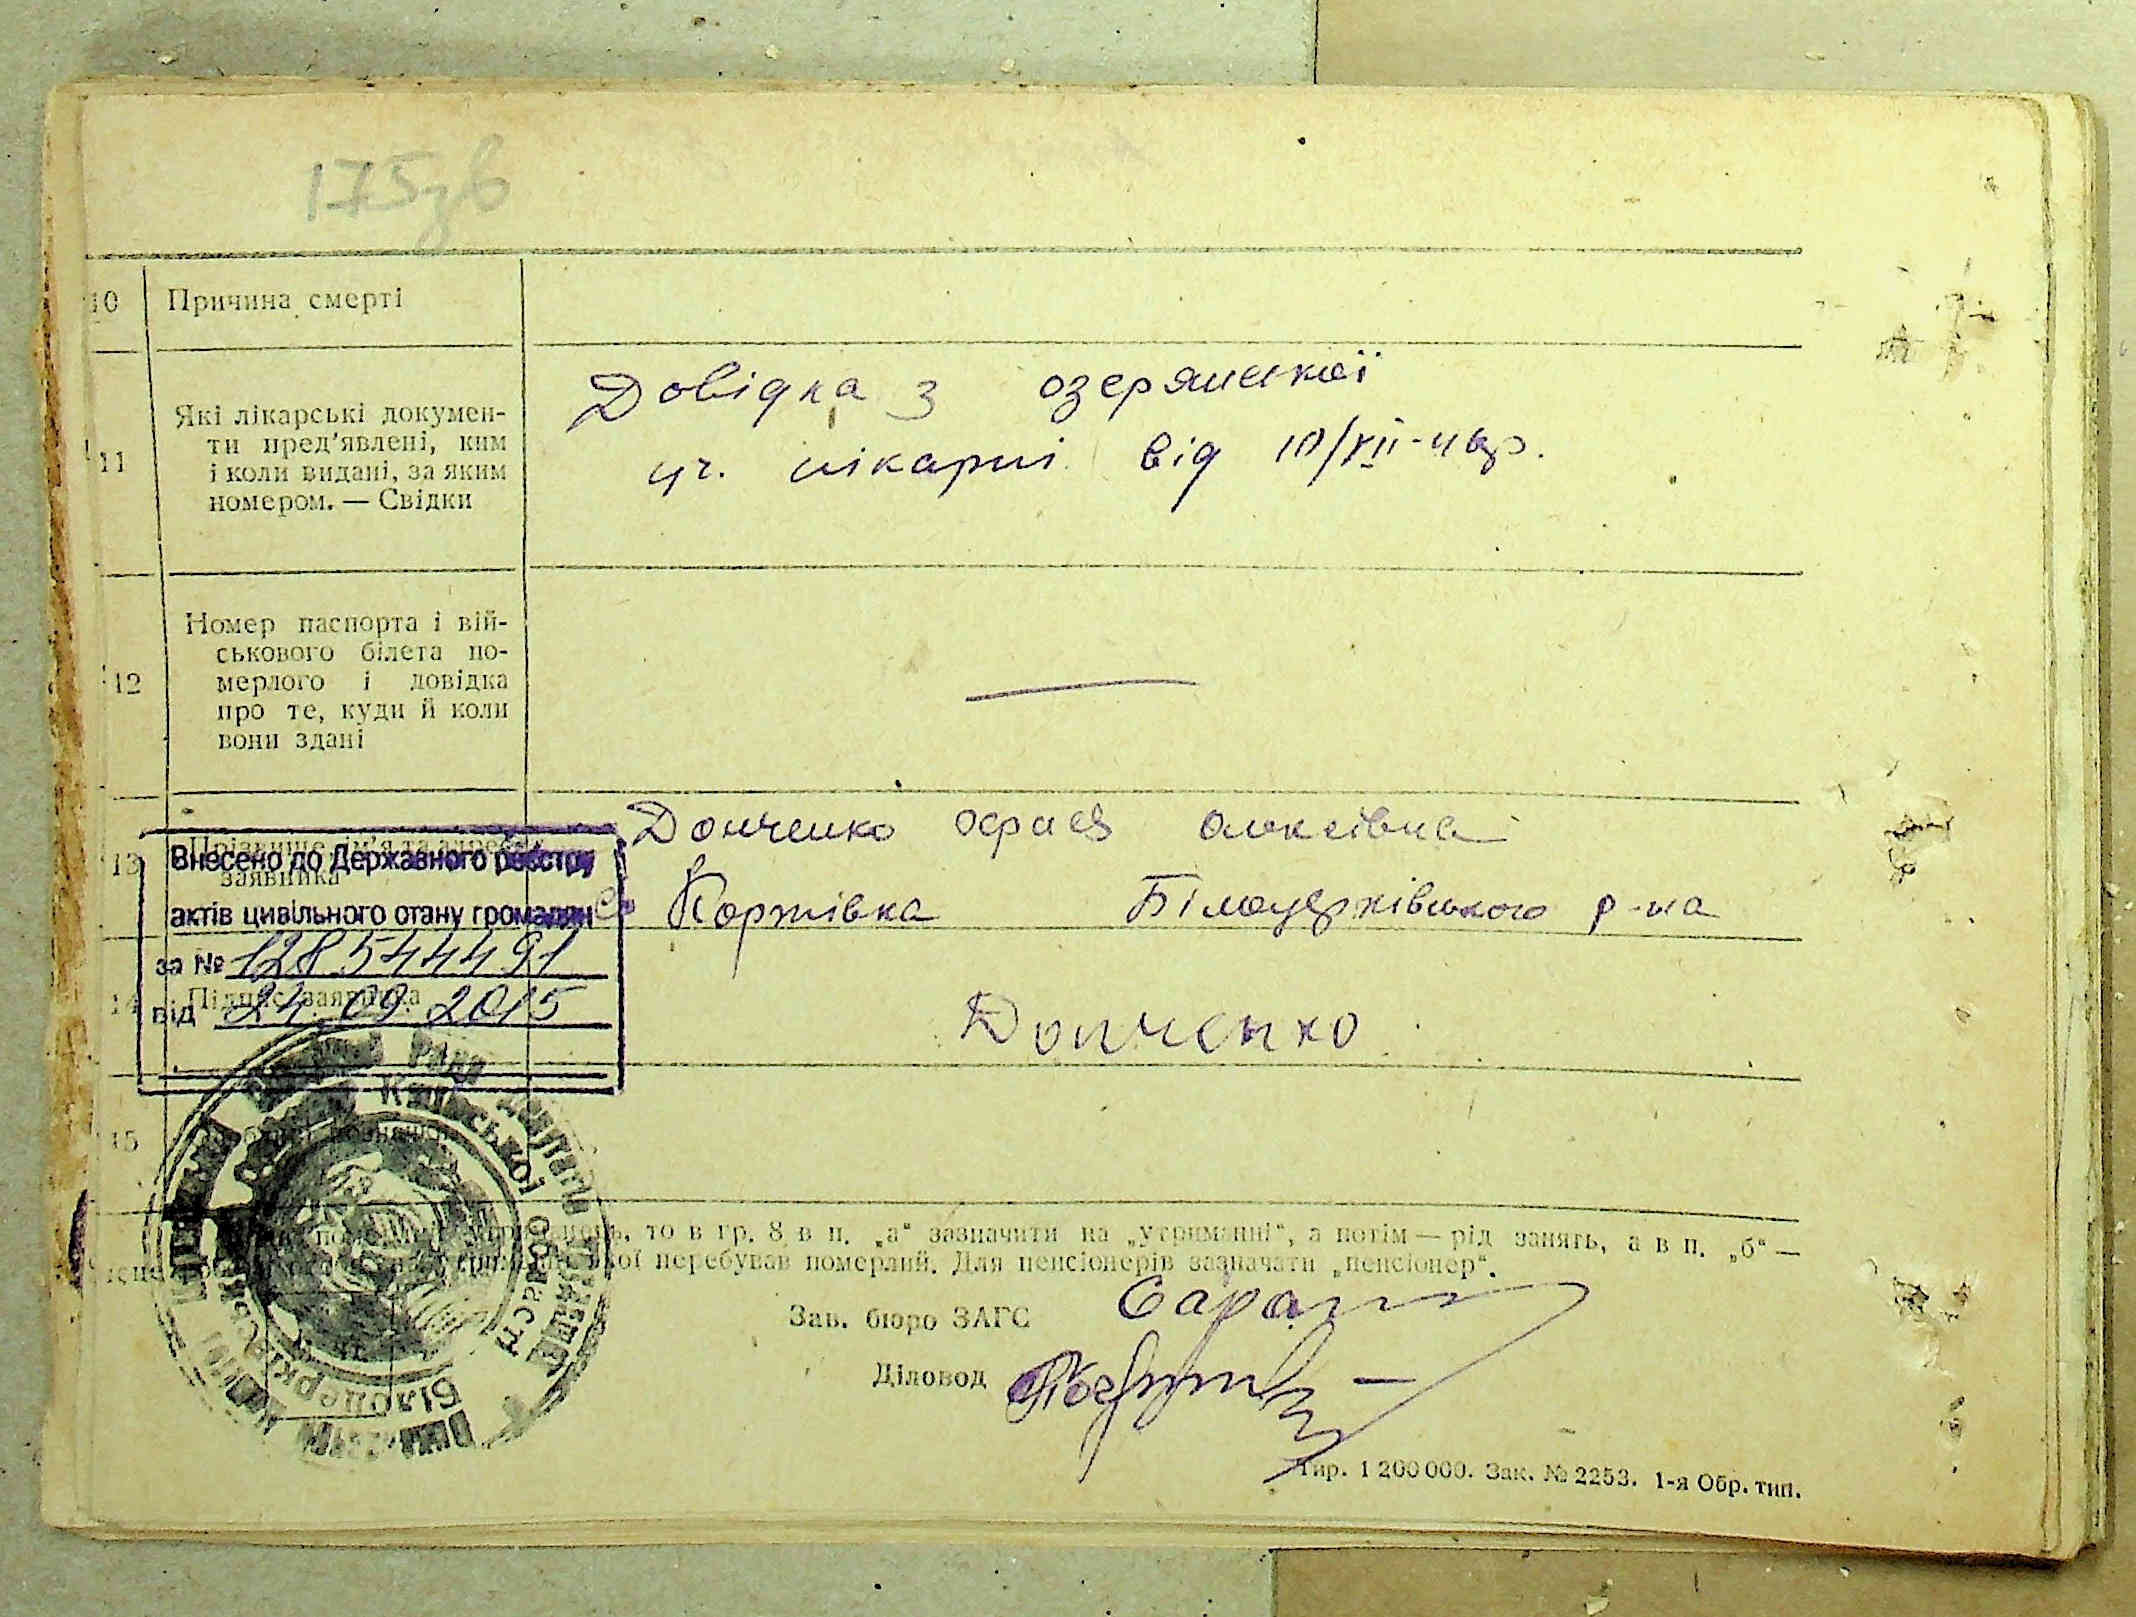 175зв
10 Причина смерті
11 Які лікарські докумен-
ти пред’явлені, ким
і коли видані, за яким
номером. — Свідки
Довідка з озерянської
уч. лікарні від
12 Номер паспорта і вій-
ськового білета по-
мерлого і довідка
про те, куди й коли
вони здані
—
13 Прізвище, ім’я та адреса
заявника
Донченко
с. Коржівка Білоцерківського р-на
14 Підпис заявника
Донченко
Внесено до Державного реєстру
актів цивільного стану громадян
за № 128544491
від 24.09.2015
15
то в гр. 8 в п. „а“ зазначити на „утриманні“, а потім — рід занять, а в п. „б“ —
перебував померлий. Для пенсіонерів зазначати „пенсіонер“.
Київської області
Зав. бюро ЗАГС
Діловод
Тир. 1 200 000. Зак. № 2253. 1-я Обр. тип.